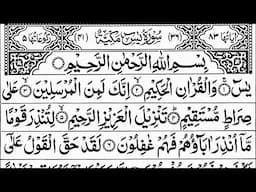 اٰيَاتُهَا ٨٣ (٣٦) سُوْرَةُ يٰسٓ مَكِّيَّةٌ (٤١) رُكُوْعَاتُهَا ٥
بِسْمِ اللّٰهِ الرَّحْمٰنِ الرَّحِيْمِ
يٰسٓ ۝ وَالْقُرْاٰنِ الْحَكِيْمِ ۝ اِنَّكَ لَمِنَ الْمُرْسَلِيْنَ ۝ عَلٰى
صِرَاطٍ مُّسْتَقِيْمٍ ۝ تَنْزِيْلَ الْعَزِيْزِ الرَّحِيْمِ ۝ لِتُنْذِرَ قَوْمًا
مَّآ اُنْذِرَ اٰبَآؤُهُمْ فَهُمْ غٰفِلُوْنَ ۝ لَقَدْ حَقَّ الْقَوْلُ عَلٰٓى